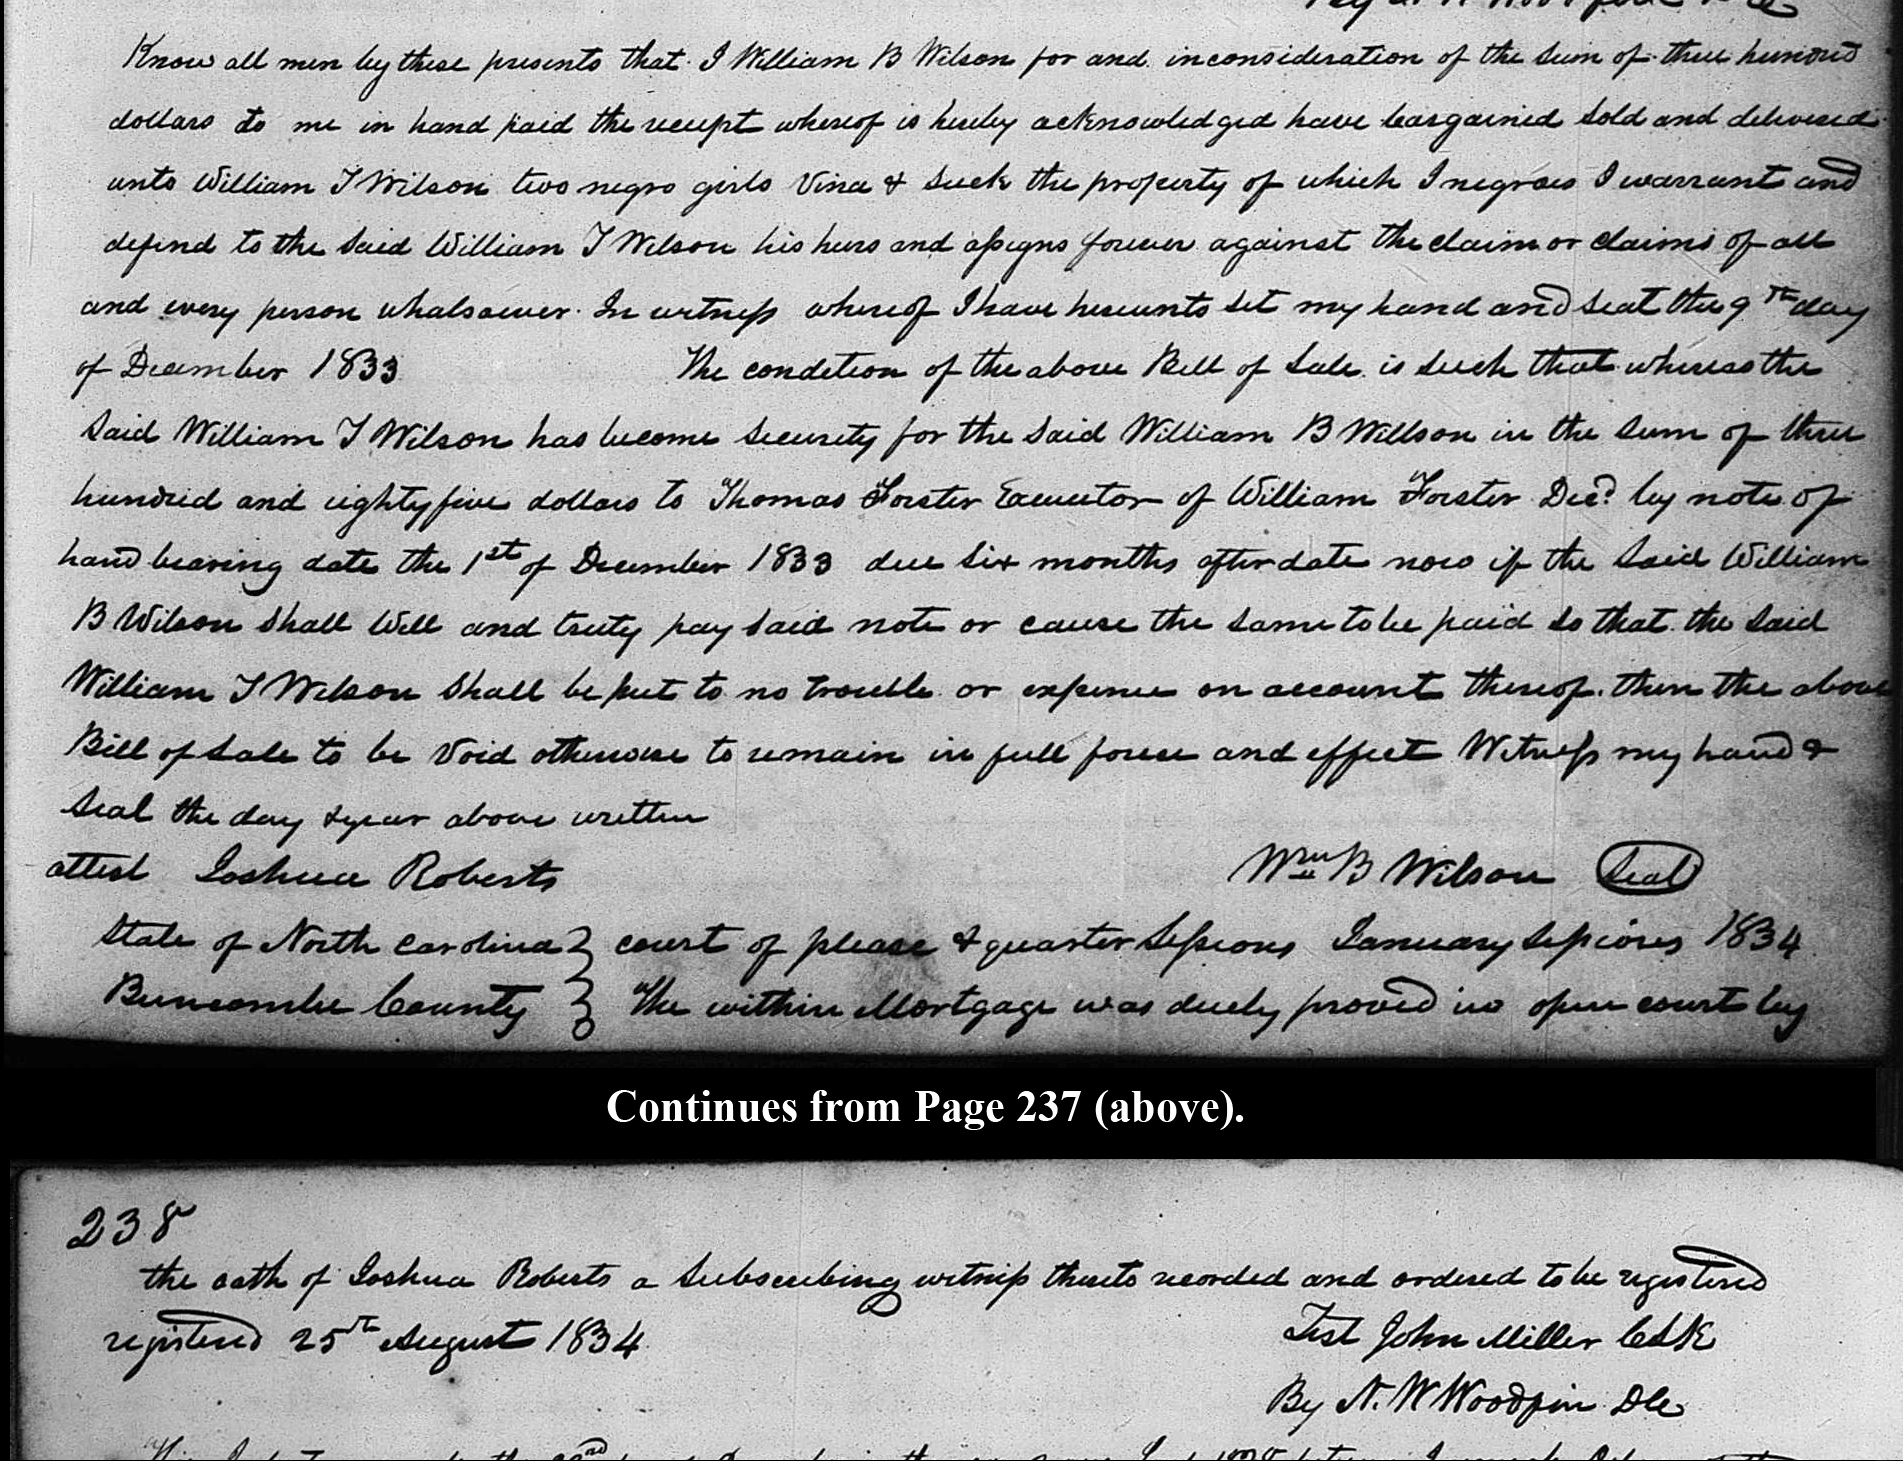 Know all men by these presents that I William B Wilson for and inconsideration of the sum of three hundred
dollars to me in hand paid the receipt whereof is hereby acknowledged have bargained sold and delivered
unto William J Wilson two negro girls Vina & Suck the property of which I negroes I warrant and
defend to the said William J Wilson his heirs and assigns forever against the claim or claims of all
and every person whatsoever. In witness whereof I have hereunto set my hand and seal the 9th day
of December 1833 The condition of the above Bill of Sale is such that whereas the
said William J Wilson has become security for the said William B Willson in the sum of three
hundred and eighty five dollars to Thomas Forster Executor of William Forster Decd by note of
hand bearing date the 1st of December 1833 due six months after date now if the said William
B Wilson shall Well and truly pay said note or cause the same to be paid so that the said
William J Wilson shall be put to no trouble or expense on account thereof. then the above
Bill of sale to be Void otherwise to remain in full force and effect Witness my hand &
seal the day & year above written
attest Joshua Roberts Wm B Wilson Seal
State of North Carolina } court of please & quarter Sessions January Sessions 1834
Buncombe County } The within Mortgage was duely proved in open court by
Continues from Page 237 (above).
238
the oath of Joshua Roberts a Subscribing witness thereto recorded and ordered to be registered
registered 25th August 1834 Test John Miller Clk
By N. W Woodfin DC